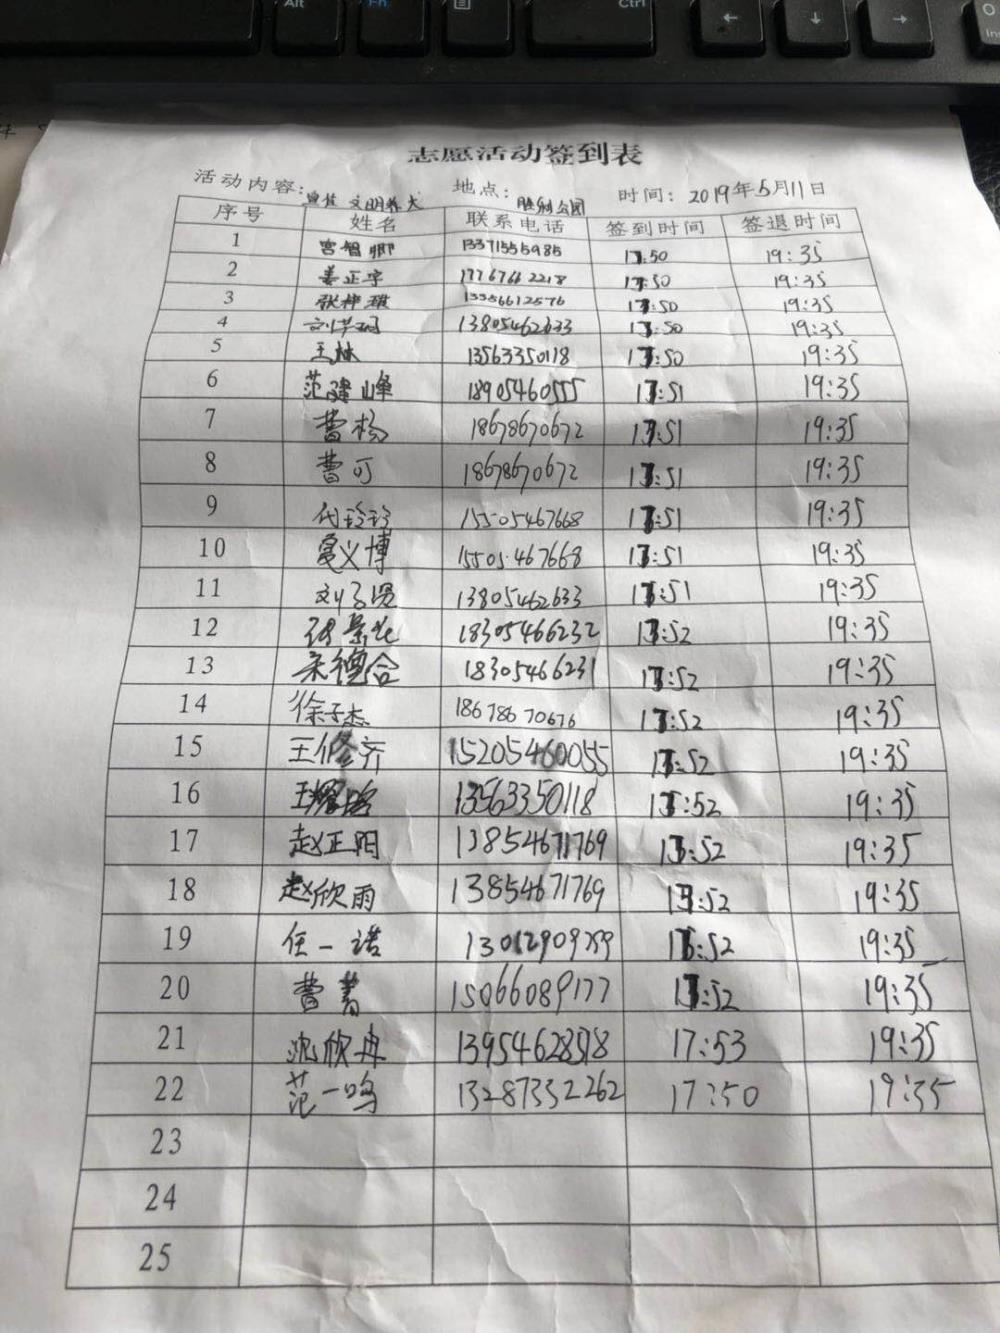 Alt Fn Ctrl ← ↓ → Ins
志愿活动签到表
活动内容: 宣传文明养犬 地点: 胜利公园 时间: 2019年5月11日
序号 姓名 联系电话 签到时间 签退时间
1 13371555985 17:50 19:35
2 姜正宇 17767662218 17:50 19:35
3 13356612576 17:50 19:35
4 13805462633 17:50 19:35
5 王林 13563350118 17:50 19:35
6 范建峰 18905460555 17:51 19:35
7 曹杨 18678670672 17:51 19:35
8 曹可 18678670672 17:51 19:35
9 代玲玲 15505467668 17:51 19:35
10 义博 15505467668 17:51 19:35
11 刘子贤 13805462633 17:51 19:35
12 18305466232 17:52 19:35
13 宋德合 18305466231 17:52 19:35
14 徐子杰 18678670676 17:52 19:35
15 王修齐 15205460055 17:52 19:35
16 13563350118 17:52 19:35
17 赵正阳 13854671769 17:52 19:35
18 赵欣雨 13854671769 17:52 19:35
19 任一诺 17:52 19:35
20 曹菁 15066089177 17:52 19:35
21 沈欣冉 13954628518 17:53 19:35
22 范一鸣 13287332262 17:50 19:35
23
24
25